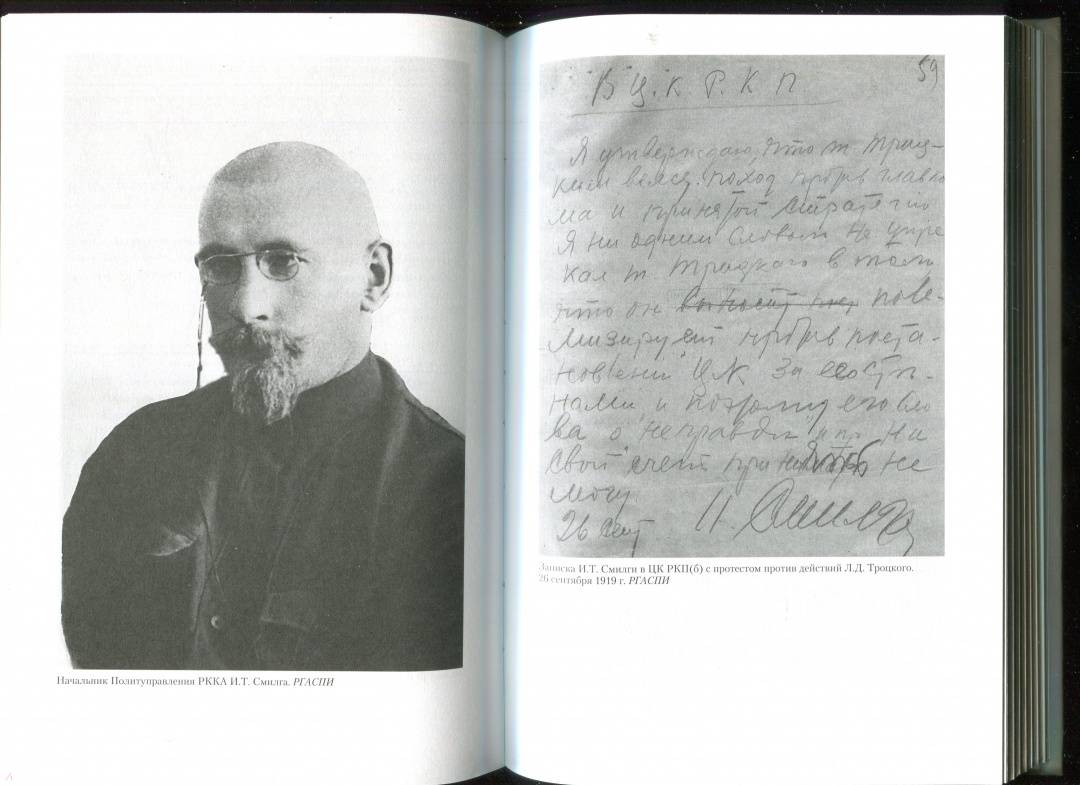 Начальник Политуправления РККА И.Т. Смилга. РГАСПИ
59
В Ц.К. Р.К П
Я утверждаю, что т Троц-
ким поход главко
ма и принятой стратегии
Я ни одним словом не упре
кал т Троцкого в том
что он поле-
мизирует постa-
новлений ЦК за
нами и поэтому его сло
ва о неправде и пр. на
свой счет не
могу
26 сент И. Смилга
Записка И.Т. Смилги в ЦК РКП(б) с протестом против действий Л.Д. Троцкого.
26 сентября 1919 г. РГАСПИ